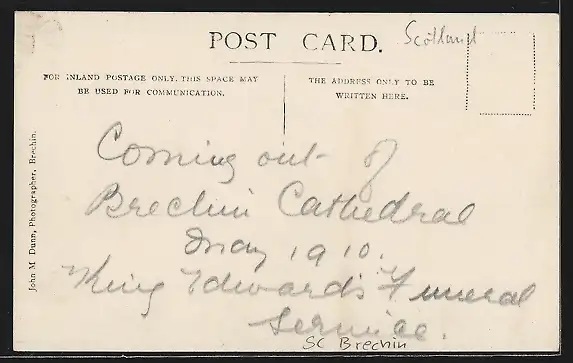 POST CARD.
Scotland
FOR INLAND POSTAGE ONLY, THIS SPACE MAY
BE USED FOR COMMUNICATION.
THE ADDRESS ONLY TO BE
WRITTEN HERE.
John M Dunn, Photographer, Brechin.
Coming out of
Brechin Cathedral
May 1910.
King Edward's Funeral
Service.
SC Brechin